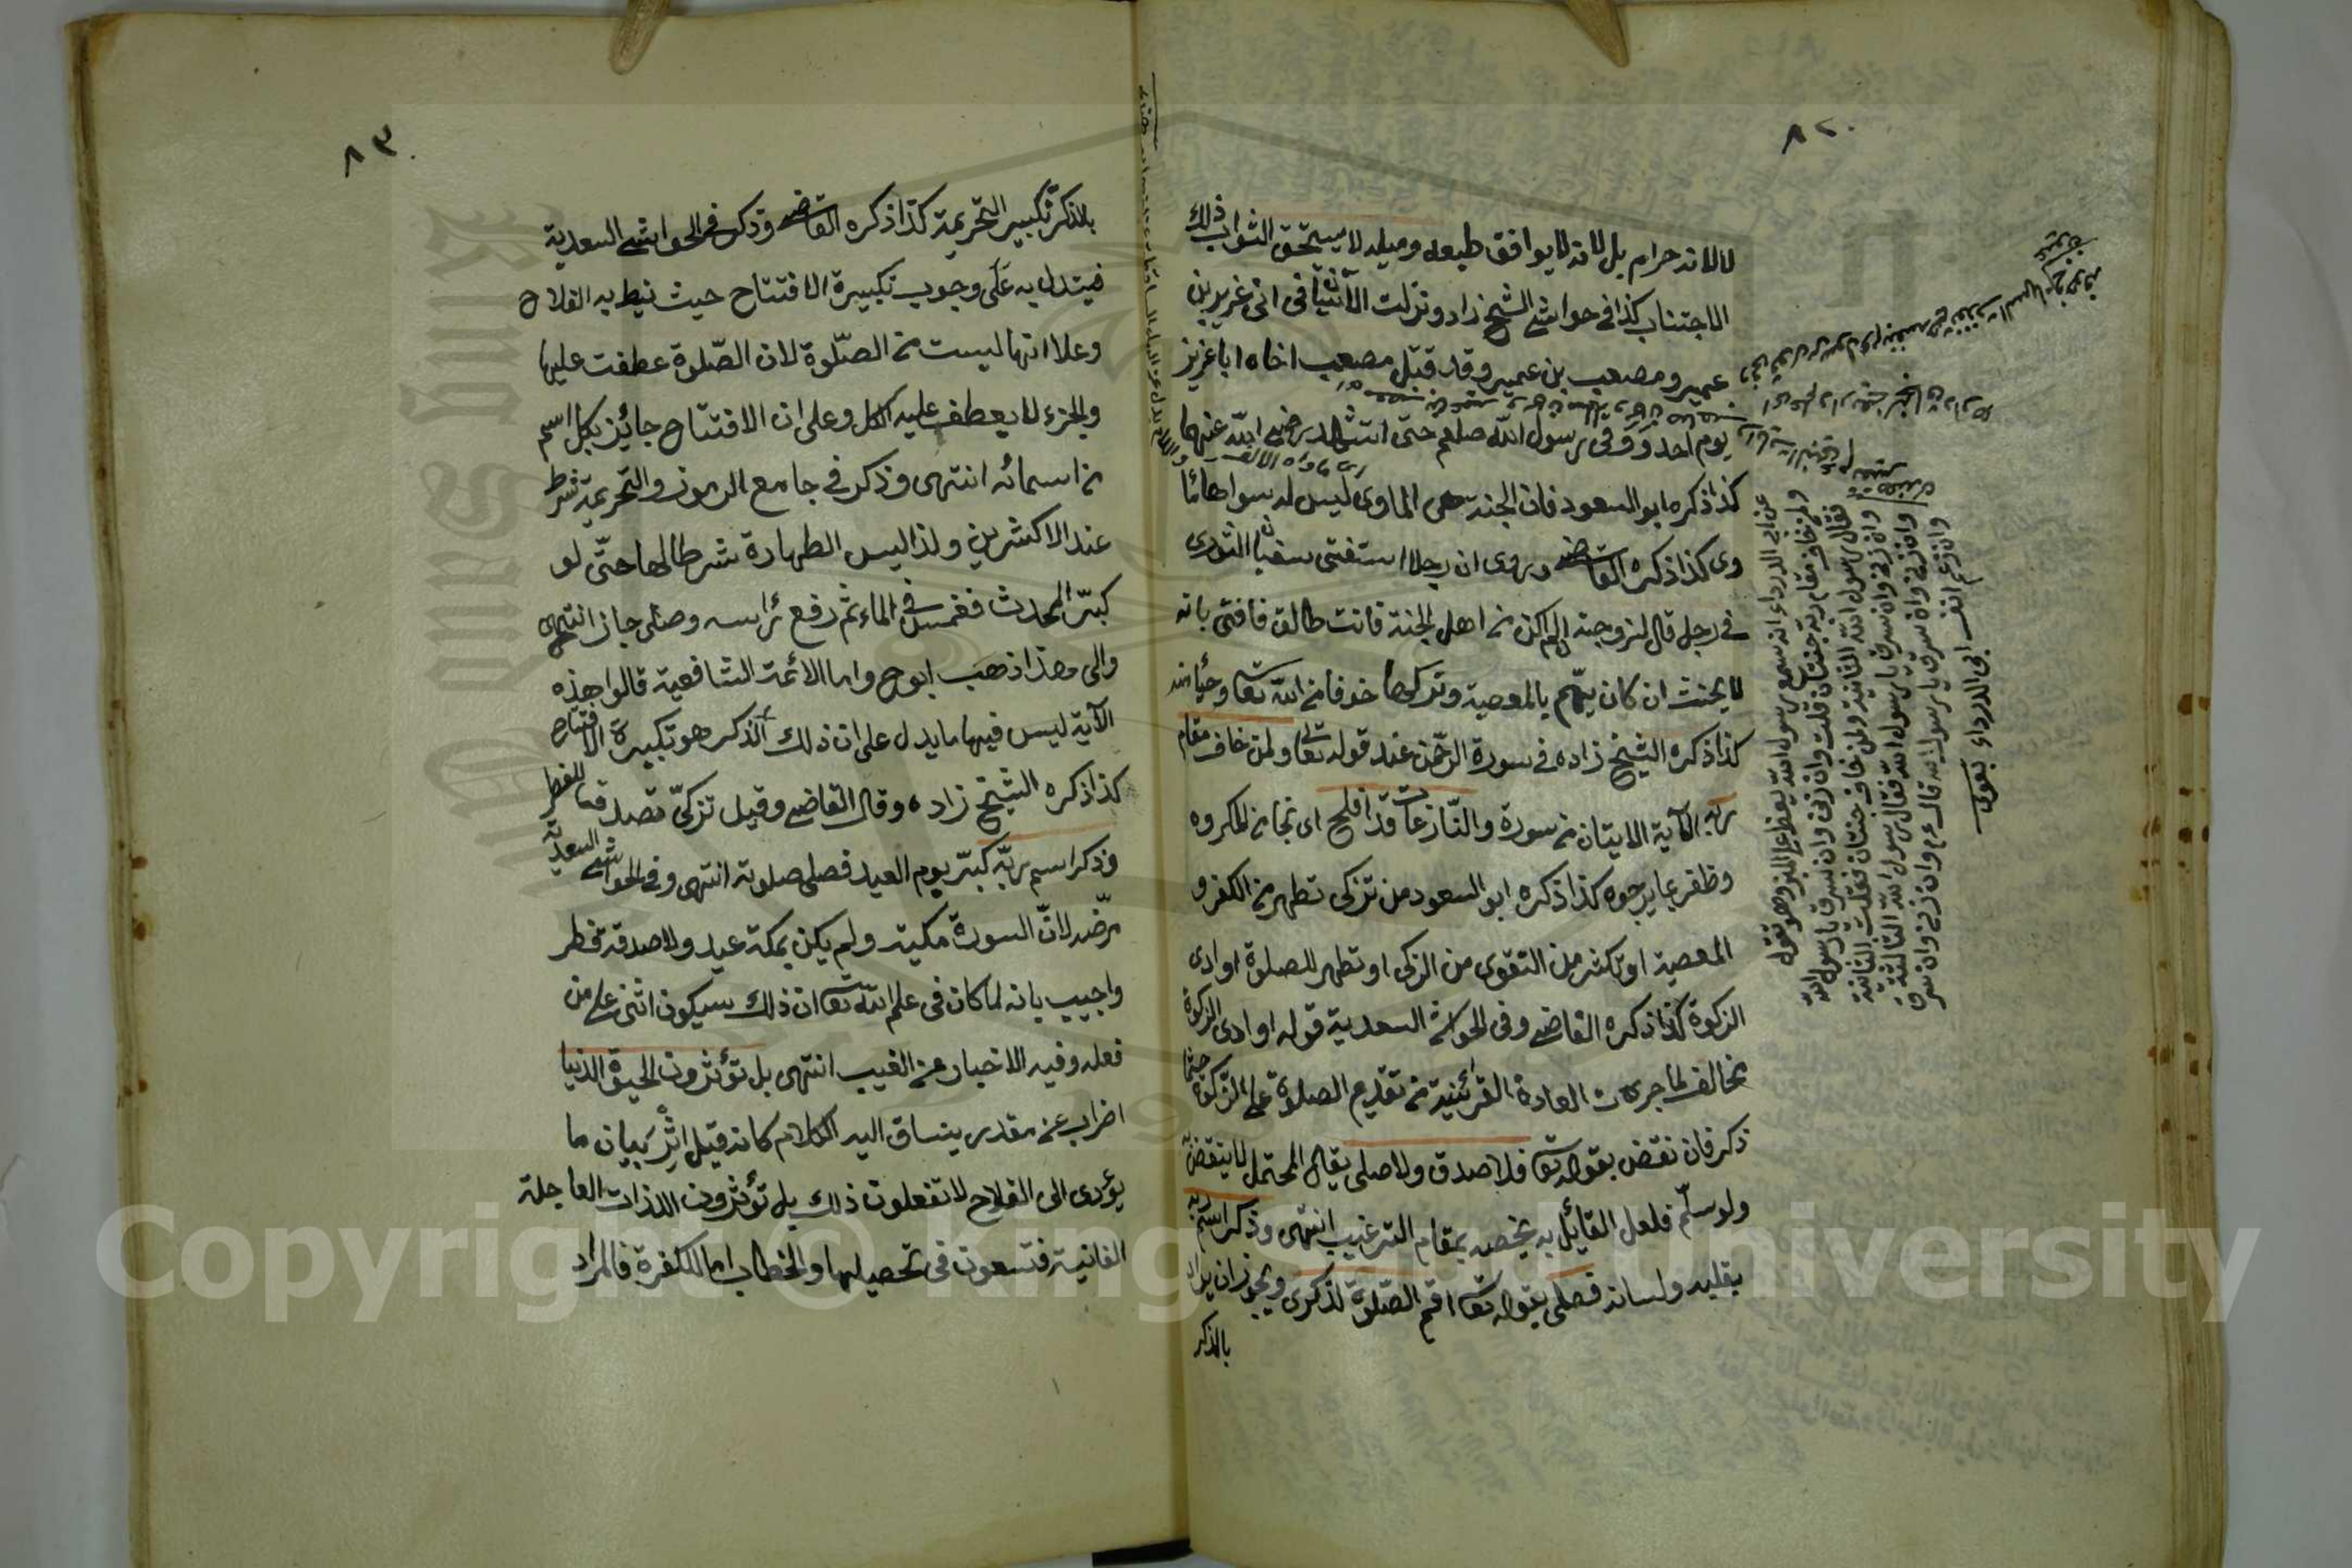 ٨٢
لا لانه حرام بل لانه لا يوافق طبعه وميله لا يستحق الثواب ذلك
الاجتناب كذا في حواشي الشيخ زاد ونزلت الآيتان في ابى عزير بن
عمير ومصعب بن عمير وقد قتل مصعب اخاه ابا عزيز
يوم احد ووقى رسول الله صلعم حتى استشهد رضى الله عنهما
كذا ذكره ابو السعود فان الجنة هى الماوى ليس له سواها مأ
وى كذا ذكره القاضى وروى ان رجلا استفتى سفيان الثورى
في رجل قال لزوجته ان لم اكن من اهل الجنة فانت طالق فافتى بانه
لا يحنث ان كان يهم بالمعصية وتركها خوفا من الله تعا وحياء منه
كذا ذكره الشيخ زاده في سورة الرحمن عند قوله تعالى ولمن خاف مقام
ربه الآية الايتان من سورة والنازعات قد افلح اى نجا من المكروه
وظفر بما يرجوه كذا ذكره ابو السعود من تزكى تطهر من الكفر و
المعصية او تكثر من التقوى من الزكى او تطهر للصلوة او ادى
الزكوة كذا ذكره القاضى وفى الحواشى السعدية قوله او ادى الزكوة
تخالف لما جرت العادة القرآنية من تقديم الصلوة على الزكوة حيثما
ذكر فان نقض بقوله تعا فلا صدق ولا صلى يقال المحتمل لا ينقض به
ولو سلم فلعل القائل به يخصه بمقام الترغيب انتهى وذكر اسم ربه
بقلبه ولسانه فصلى بقوله تعا اقم الصلوة لذكرى ويجوز ان يراد
بالذكر
عن ابى الدرداء انه سمع رسول الله يعظ على المنبر وهو يقول
ولمن خاف مقام ربه جنتان قلت وان زنى وان سرق يا رسول الله
فقال رسول الله الثانية ولمن خاف جنتان فقلت الثانية
وان زنى وان سرق يا رسول الله فقال رسول الله الثالثة
وان زنى وان سرق يا رسول الله قال نعم وان زنى وان سرق
وان رغم انف ابى الدرداء بغوى
٨٣
بالذكر تكبير التحريمة كذا ذكره القاضى وذكر في الحواشى السعدية
فيتدل به على وجوب تكبيرة الافتتاح حيث نيط به الفلاح
وعلا انها ليست من الصلوة لان الصلوة عطفت عليها
والجزء لا يعطف عليه الكل وعلى ان الافتتاح جائز بكل اسم
من اسمائه انتهى وذكر في جامع الرموز والتحريمة شرط
عند الاكثرين ولذا ليس الطهارة شرطا لها حتى لو
كبر المحدث فغمس في الماء ثم رفع رأسه وصلى جاز انتهى
والى هذا ذهب ابو ح واما الائمة الشافعية قالوا هذه
الآية ليس فيها ما يدل على ان ذلك الذكر هو تكبيرة الافتتاح
كذا ذكره الشيخ زاده وقال القاضى وقيل تزكى تصدق للفطر
وذكر اسم ربه كبر يوم العيد فصلى صلوته انتهى وفى الحواشى السعدية
مرضه لان السورة مكية ولم يكن بمكة عيد ولا صدقة فطر
واجيب بانه لما كان فى علم الله تعا ان ذلك سيكون اثنى على من
فعله وفيه الاخبار عن الغيب انتهى بل تؤثرون الحيوة الدنيا
اضراب عن مقدر ينساق اليه الكلام كانه قيل اثر بيان ما
يؤدى الى الفلاح لا تفعلون ذلك بل تؤثرون اللذات العاجلة
الفانية فتسعون فى تحصيلها والخطاب اما للكفرة فالمراد
Copyright © King Saud University